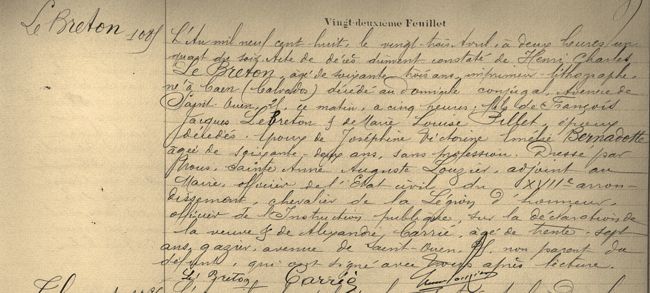 Vingt-deuxième Feuillet
Le Breton 1085
L'An mil neuf cent huit, le vingt-trois Avril, à deux heures un
quart du soir, Acte de décès dûment constaté de Henri Charles
Le Breton, âgé de soixante trois ans, imprimeur-lithographe,
né à Caen (Calvados) décédé au domicile conjugal, Avenue de
Saint Ouen, ce matin, à cinq heures; fils de François
Jacques Le Breton & de Marie Louise Pillet, époux
décédés. Époux de Joséphine Victorine Bernadotte
âgée de soixante-deux ans, sans profession. Dressé par
Nous, Sainte Anne Auguste Louzier, adjoint au
Maire, officier de l'Etat civil, du XVIIe arron-
dissement, chevalier de la Légion d'honneur,
officier de l'Instruction publique, sur la déclaration de
la veuve & de Alexandre Carrié, âgé de trente-sept
ans, gazier, avenue de Saint-Ouen, non parent du
défunt, qui ont signé avec Nous après lecture.
Le Breton Carrié